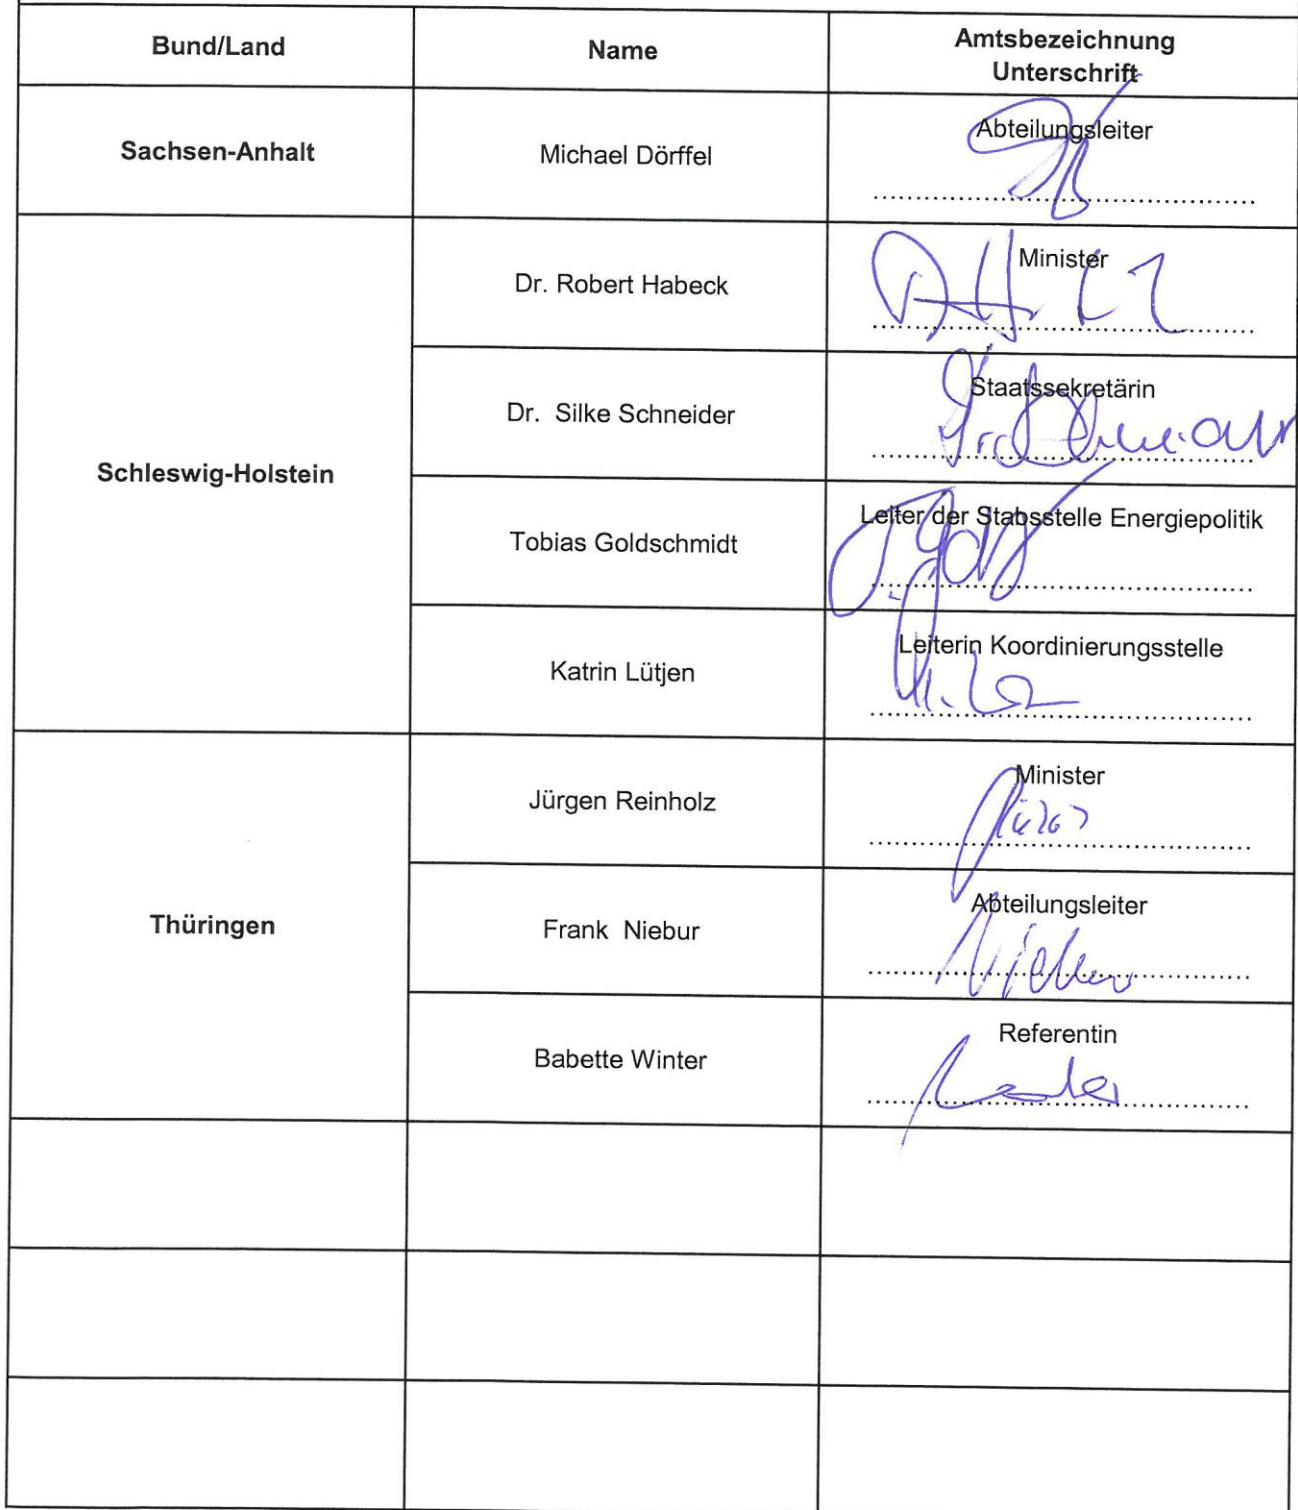 Bund/Land
Name
Amtsbezeichnung
Unterschrift
Sachsen-Anhalt
Michael Dörffel
Abteilungsleiter
Schleswig-Holstein
Dr. Robert Habeck
Minister
Dr. Silke Schneider
Staatssekretärin
Tobias Goldschmidt
Leiter der Stabsstelle Energiepolitik
Katrin Lütjen
Leiterin Koordinierungsstelle
Thüringen
Jürgen Reinholz
Minister
Frank Niebur
Abteilungsleiter
Babette Winter
Referentin